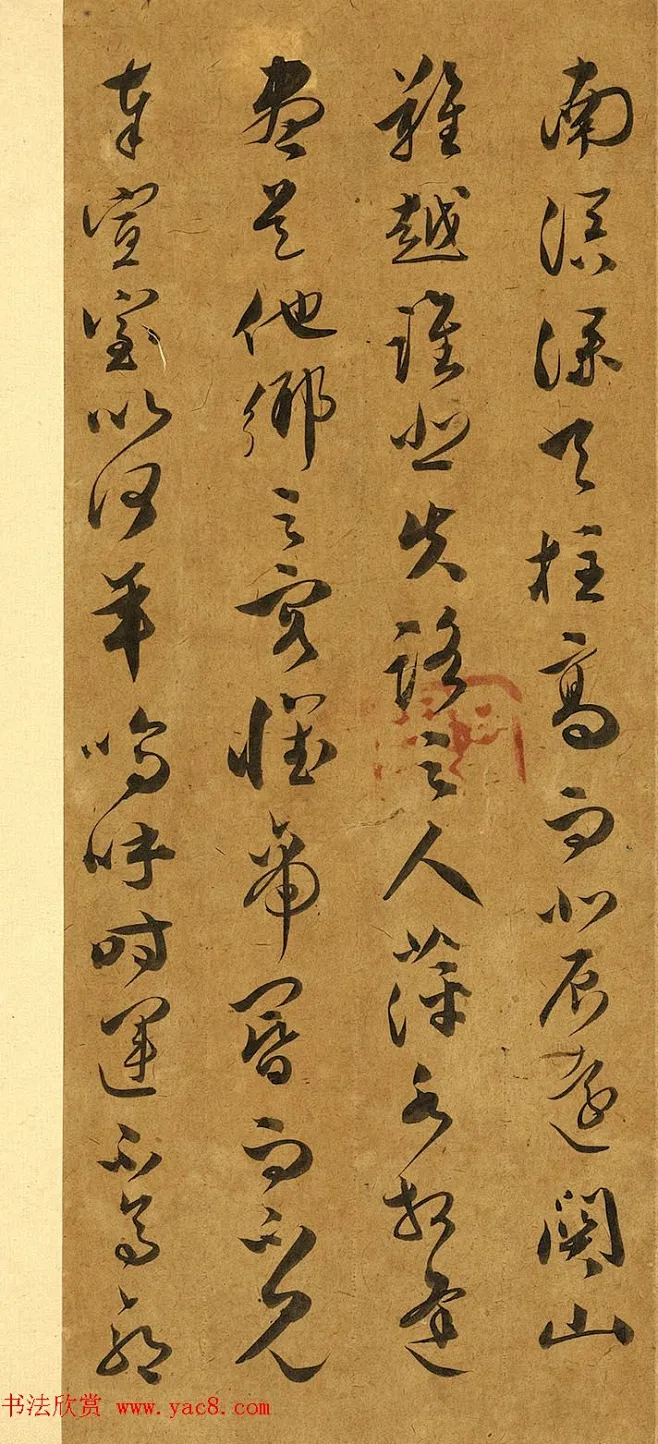 南溟深天柱高而北辰遠關山
難越誰悲失路之人萍水相逢
盡是他鄉之客懷帝閽而不見
奉宣室以何年嗚呼時運不齊命
书法欣赏 www.yac8.com